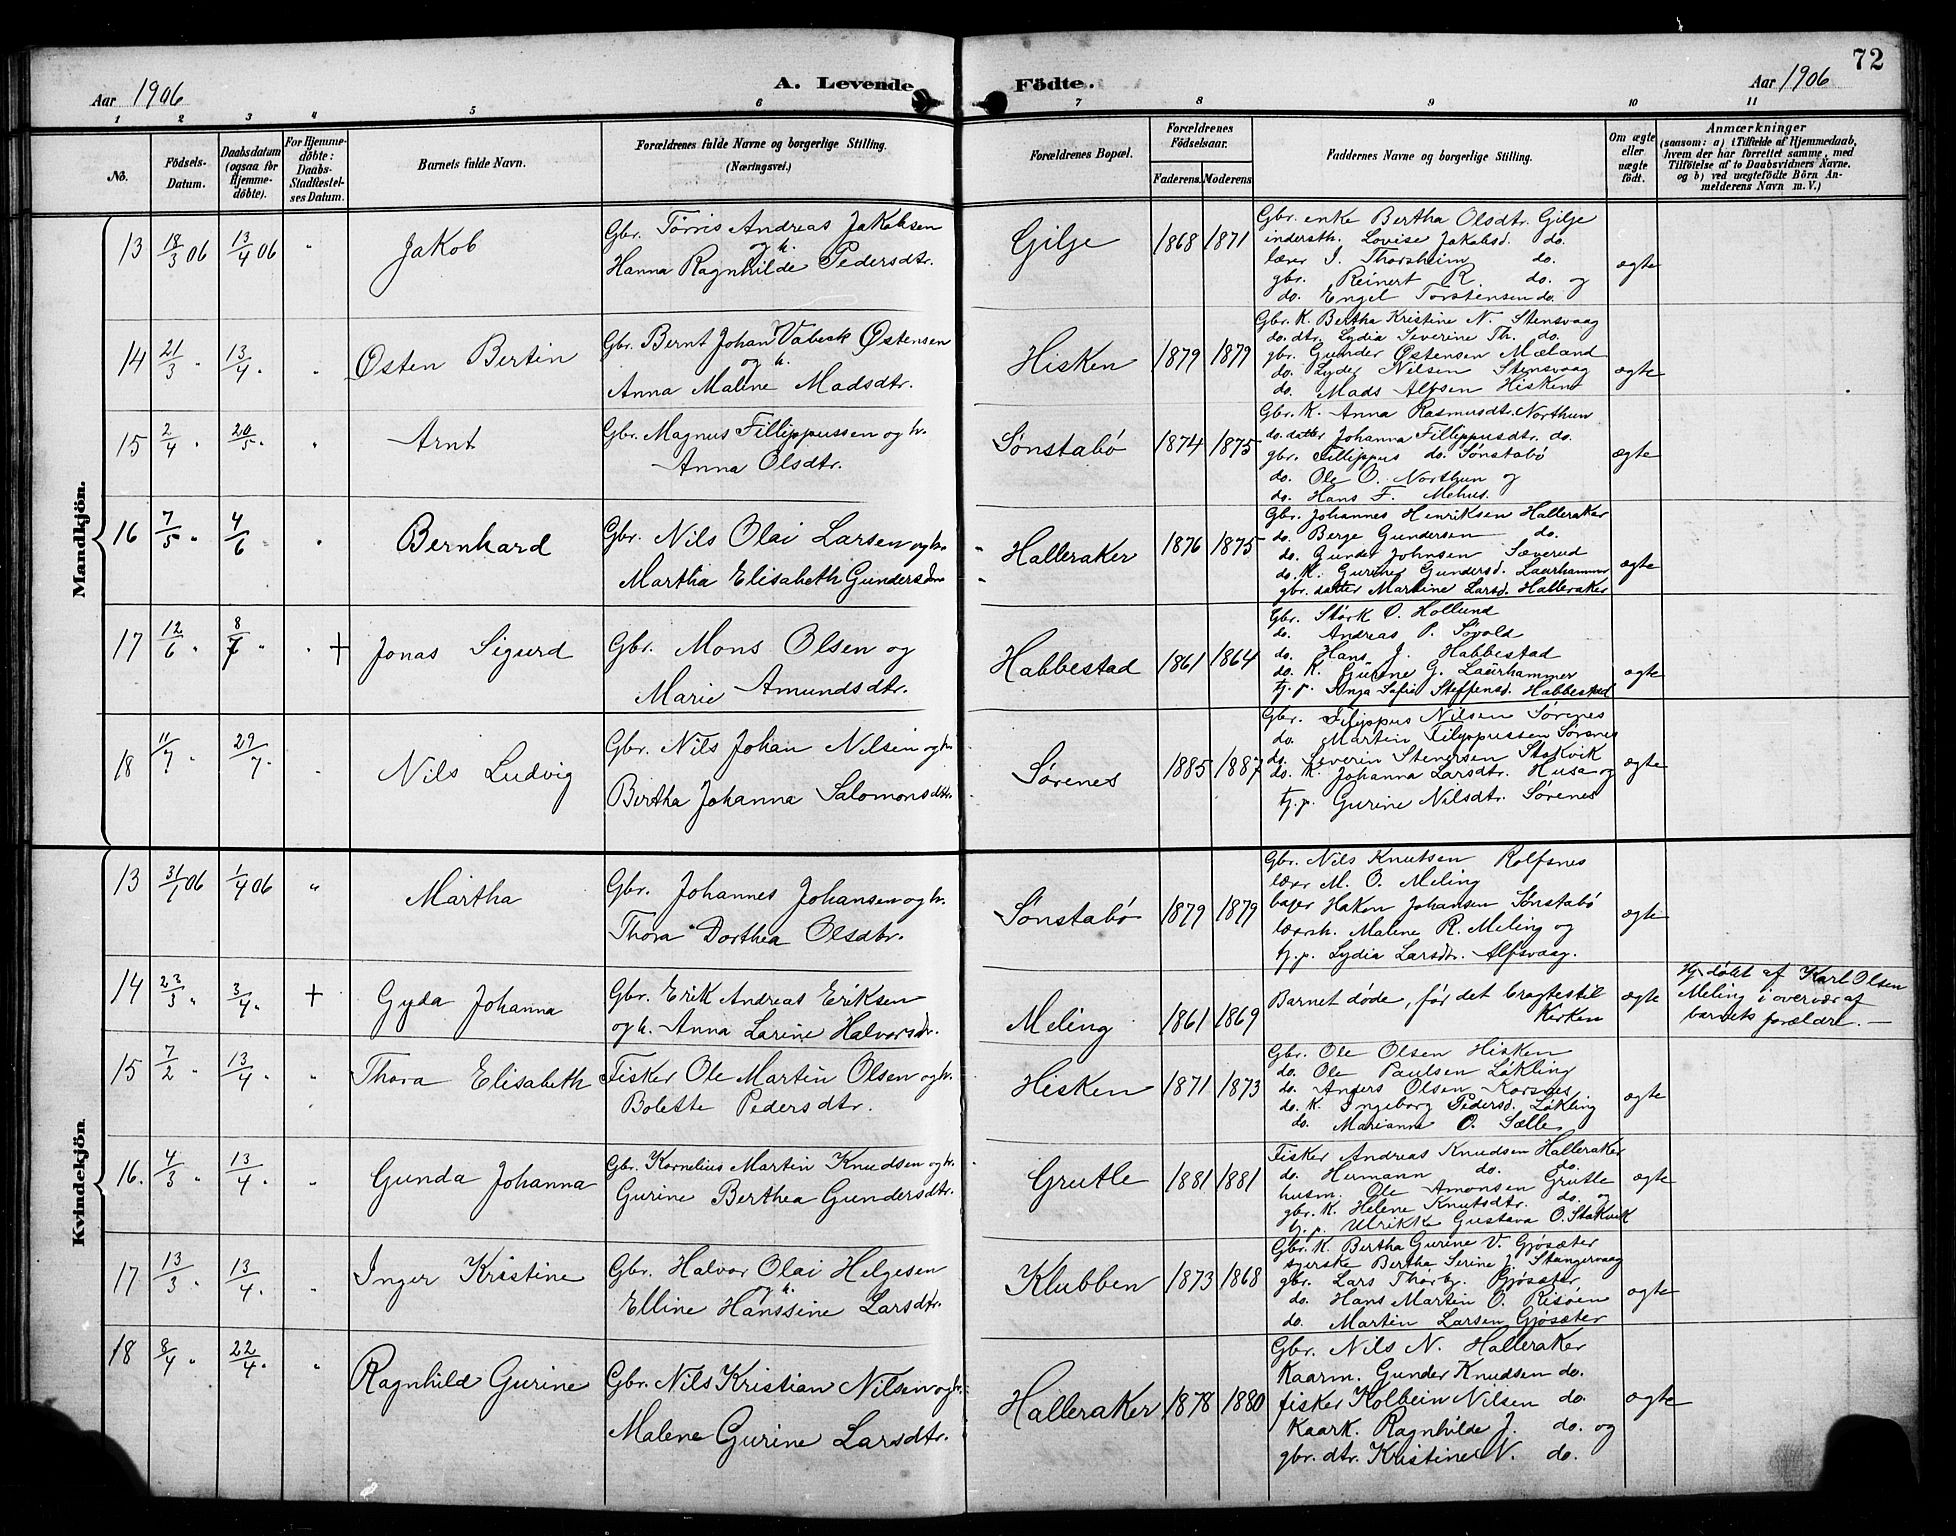 72
Aar 1906
A. Levende Födte.
Aar 1906
1 2 3 4 5 6 7 8 9 10 11
No.
Födsels-Datum.
Daabsdatum (ogsaa för Hjemmedöbte).
For Hjemmedöbte: Daabs-Stadfæstelses Datum.
Barnets fulde Navn.
Forældrenes fulde Navne og borgerlige Stilling.
(Næringsvei.)
Forældrenes Bopæl.
Forældrenes Födselsaar.
Faderens. Moderens
Faddernes Navne og borgerlige Stilling.
Om ægte eller uægte födt.
Anmærkninger
(saasom: a) i Tilfælde af Hjemmedaab, hvem der har forrettet samme, med Tilföielse af to Daabsvidners Navne, og b) ved uægtefödte Börn Anmelderens Navn m. V.)
Mandkjön.
13 18/3 06 13/4 06 " Jakob
Gbr. Tørris Andreas Jakobsen
og h.
Hanna Ragnhilde Pedersdtr.
Gilje 1868 1871
Gbr. enke Bertha Olsdtr. Gilje
indersth. Lovise Jakobsd. do.
lærer I. Thorsheim do.
gbr. Reinert R. do. og
do. Engel Torstensen do.
ægte
14 21/3 " 13/4 " " Østen Bertin
Gbr. Bernt Johan Vabech Østensen
og h.
Anna Maline Madsdtr.
Hisken 1879 1879
Gbr. K. Bertha Kristine N. Stensvaag
do. dtr. Lydia Severine Th. do.
gbr. Gunder Østensen Mæland
do. Lyder Nilsen Stensvaag
do. Mads Alfsen Hisken
ægte
15 2/4 " 20/5 " " Arnt
Gbr. Magnus Fillippussen og h.
Anna Olsdtr.
Sønstabø 1874 1875
Gbr. K. Anna Rasmusdtr. Northun
do. datter Johanna Fillippusdtr. do.
gbr. Fillippus do. Sønstabø
do. Ole O. Northun og
do. Hans F. Mehus.
ægte
16 7/5 " 4/6 " " Bernhard
Gbr. Nils Olai Larsen og h.
Martha Elisabeth Gundersdtr.
Halleraker 1876 1875
Gbr. Johannes Henriksen Halleraker
do. Berge Gundersen do.
do. Gunder Johnsen Sæverud
do. K. Gurine Gundersd. Laurhammer
gbr. datter Martine Larsd. Halleraker
ægte
17 12/6 " 8/7 " " + Jonas Sigurd
Gbr. Mons Olsen og
Marie Amundsdtr.
Habbestad 1861 1864
Gbr. Størk O. Hollund
do. Andreas P. Søvold
do. Hans J. Habbestad
do. K. Gurine G. Laurhammer
tj. p. Inga Sofie Steffensd. Habbestad
ægte
18 11/7 " 29/7 " " Nils Ludvig
Gbr. Nils Johan Nilsen og h.
Bertha Johanna Salomonsdtr.
Sørenes 1885 1887
Gbr. Filippus Nilsen Sørenes
do. Martin Filippussen Sørenes
do. Severin Stenersen Stokvik
do. K. Johanna Larsdtr. Husa og
tj. p. Gurine Nilsdtr. Sørenes
ægte
Kvindekjön.
13 31/1 06 1/4 06 " Martha
Gbr. Johannes Johansen og h.
Thora Dorthea Olsdtr.
Sønstabø 1879 1879
Gbr. Nils Knutsen Rolfsnes
lærer M. O. Meling
bager Hakon Johansen Sønstabø
lærerh. Malene R. Meling og
tj. p. Lydia Larsdtr. Alfsvaag.
ægte
14 23/3 " 3/4 " + Gyda Johanna
Gbr. Erik Andreas Eriksen
og h. Anna Larine Halvorsdtr.
Meling 1861 1869
Barnet døde, før det bragtes til
kirken
ægte
Hj. døbt af Karl Olsen
Meling i overvær af
barnets forældre. —
15 7/2 " 13/4 " " Thora Elisabeth
Fisker Ole Martin Olsen og h.
Bolette Pedersdtr.
Hisken 1871 1873
Gbr. Ole Olsen Hisken
do. Ole Paulsen Løkling
do. Anders Olsen Korsnes
do. K. Ingeborg Pedersd. Løkling
do. Marianne O. Sælle
ægte
16. 4/3 " 13/4 " " Gunda Johanna
Gbr. Kornelius Martin Knudsen og h.
Gurine Berthea Gundersdtr.
Grutle 1881 1881
Fisker Andreas Knudsen Halleraker
do. Hermann do. do.
husm. Ole Amonsen Grutle
gbr. K. Helene Knutsdtr. do. og
tj. p. Ulrikke Gustava O. Stokvik
ægte
17 13/3 " 13/4 " " Inger Kristine
Gbr. Halvor Olai Helgesen
og h.
Elline Hanssine Larsdtr.
Klubben 1873 1868
Gbr. K. Bertha Gurine V. Gjøsæter
syerske Bertha Serine J. Stangervaag
gbr. Lars Thorbj. Gjøsæter
do. Hans Martin O. Risøen
do. Martin Larsen Gjøsæter
ægte
18 8/4 " 22/4 " " Ragnhild Gurine
Gbr. Nils Kristian Nilsen og h.
Malene Gurine Larsdtr.
Halleraker 1878 1880
Gbr. Nils N. Halleraker
Kaarm. Gunder Knudsen do.
fisker Kolbein Nilsen do.
Kaark. Ragnhilde J. do. og
gbr. dtr. Kristine N. do.
ægte